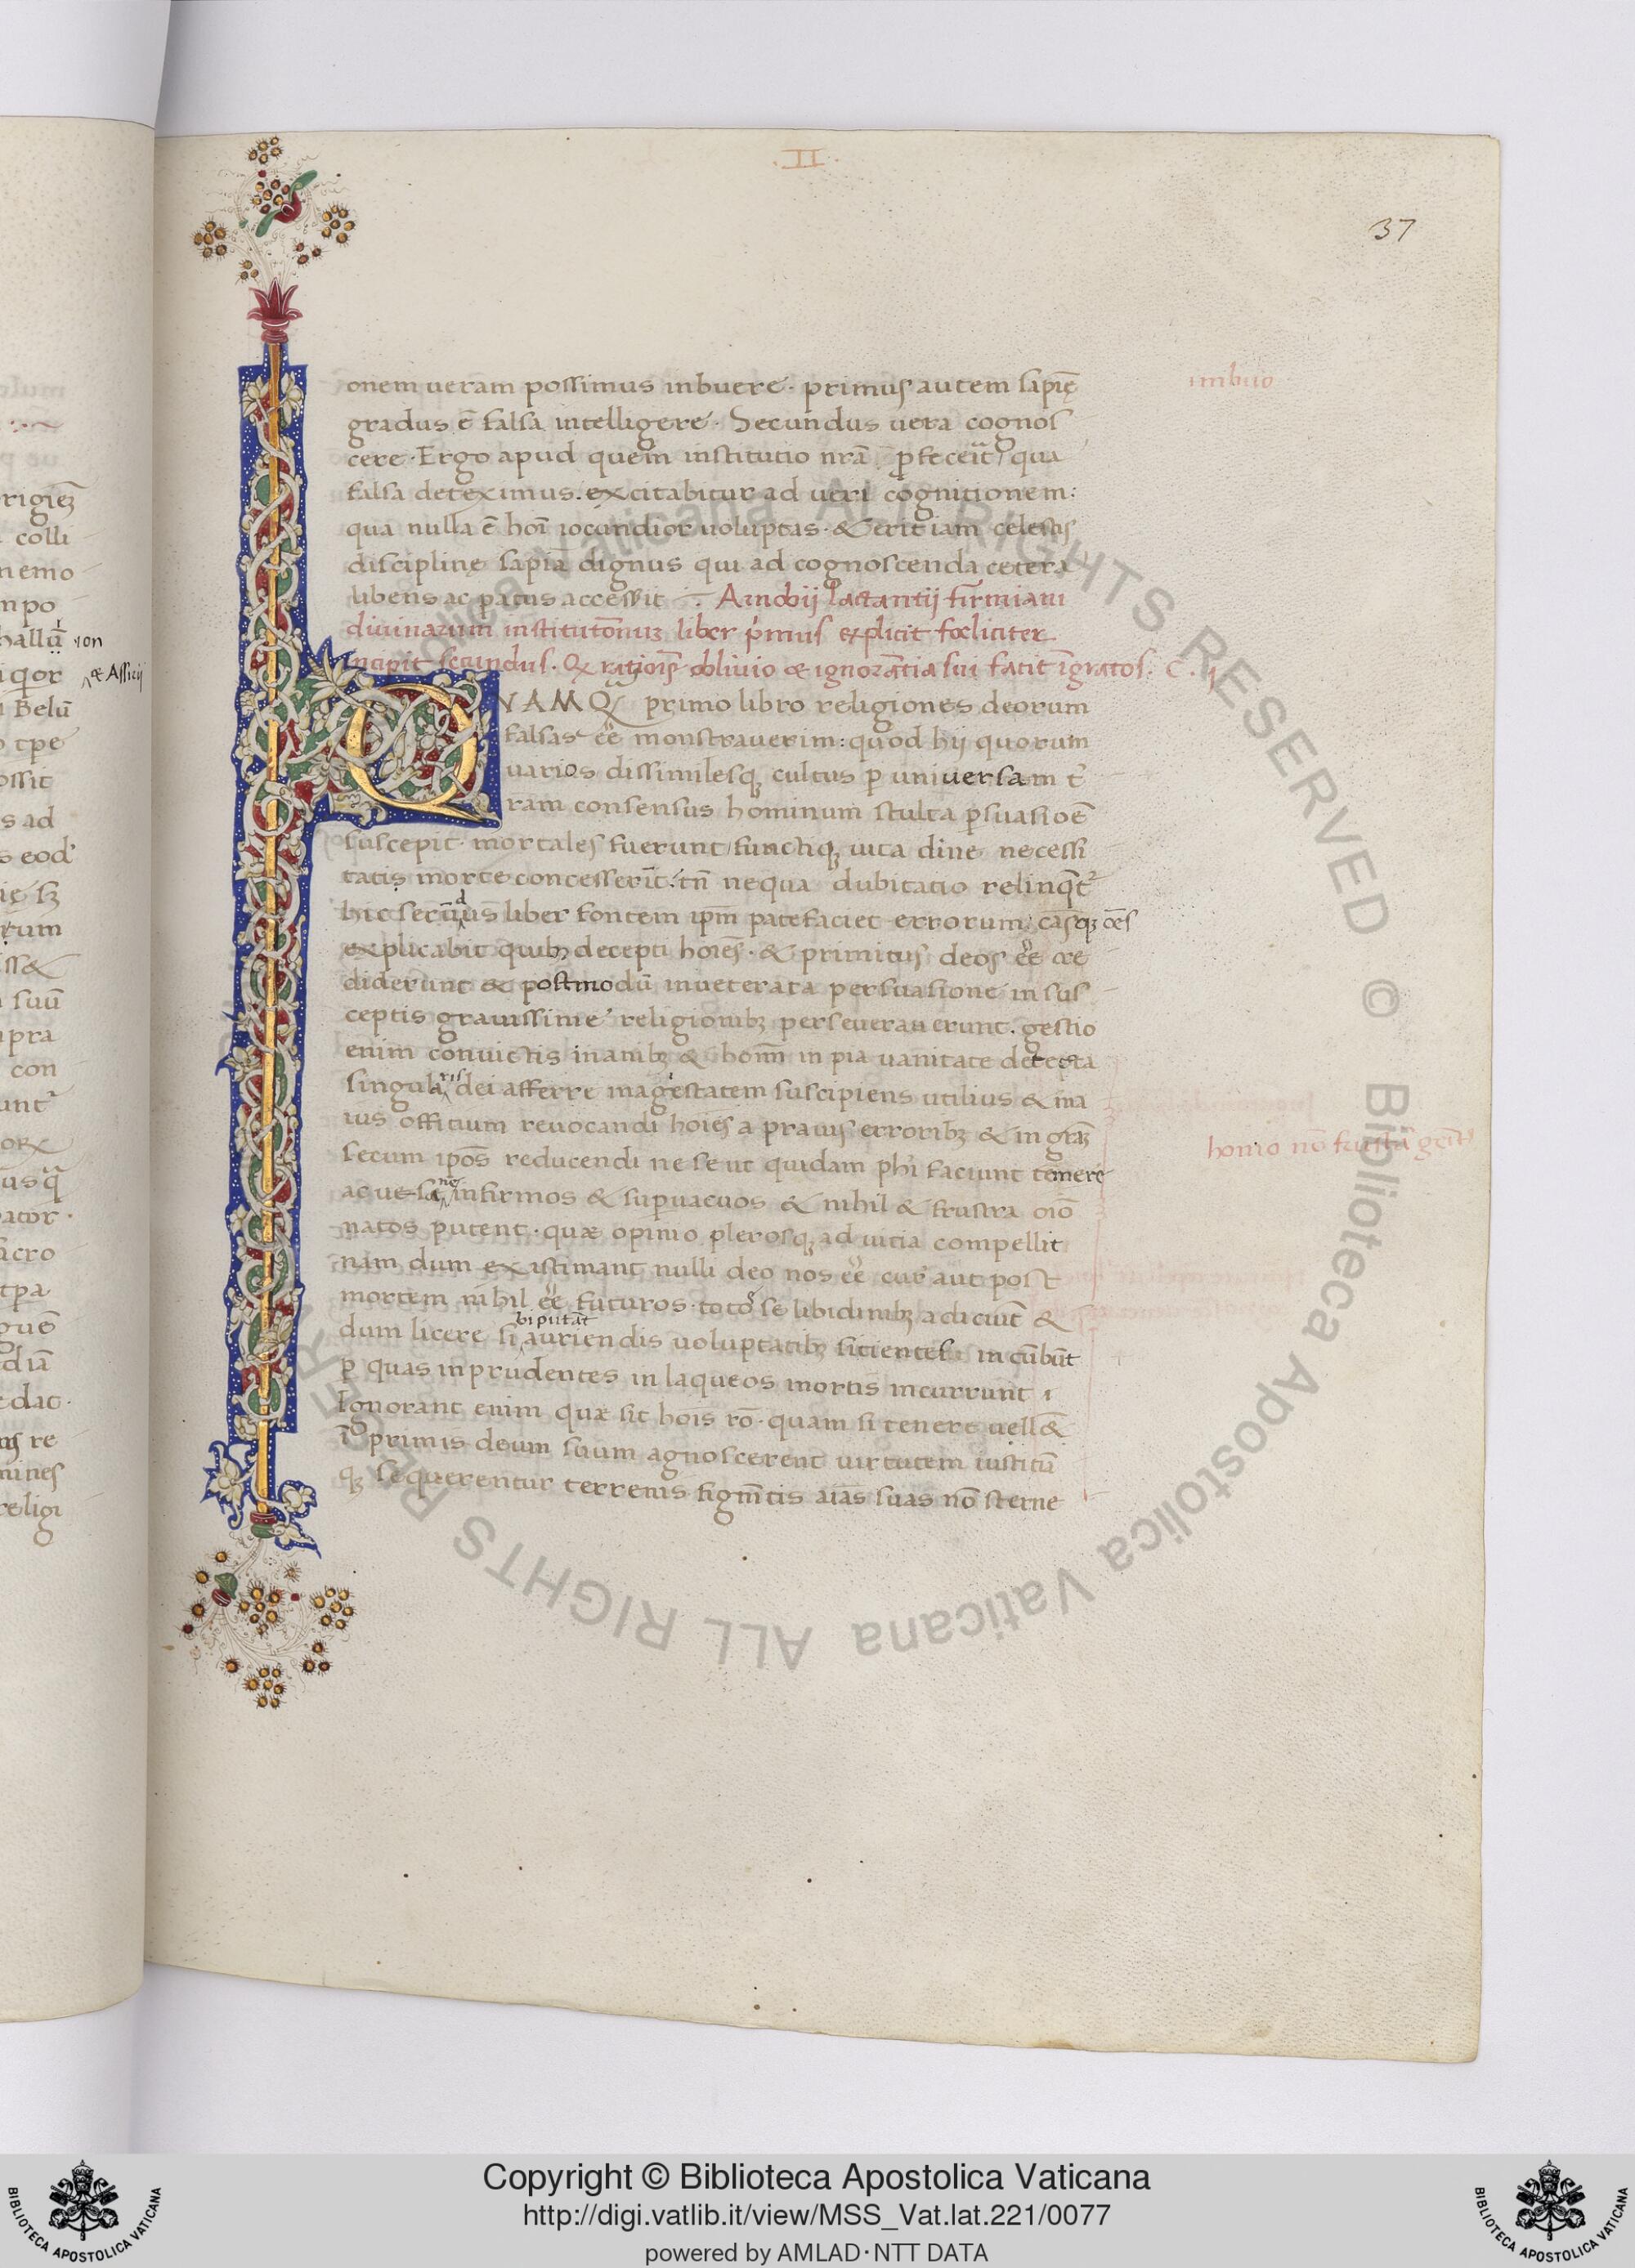 .II.
37
onem veram possimus inbuere · primus autem sapię
imbuo
gradus ē falsa intelligere · Secundus vera cognos
cere · Ergo apud quem institutio nr̄a p̄feceīt / qua
falsa deteximus . excitabitur ad veri cognitionem :
qua nulla ē hoī iocundior voluptas · & erit iam celestis
disciplinę sapīa dignus qui ad cognoscenda cetera
libens ac patus accessit ·:· Arnobij Lactantij firmiani
divinarum institutōnuꝫ liber p̍mus explicit fœliciter
Incipit secundus . Qꝫ rationis oblivio & ignorātia sui facit īgratos : C . ij
VAMQ primo libro religiones deorum
falsas eē monstraverim : quod hij quorum
varios dissimilesqꝫ cultus ꝑ universam t̍
ram consensus hominum stulta ꝑsuasioē
suscepit · mortales fuerunt / functiqꝫ vita dine necessi
tatis morte concesserīt : tn̄ nequa dubitatio relinq̄t᷑
hic secūdus liber fontem ip̄m patefaciet errorum : cāsqꝫ oēs
explicabit quibꝫ decepti hoies · & primitus deos eē cre
diderunt & postmodū inveterata persuasione in sus
ceptis gravissime religionibꝫ perseveraverunt . gestio
enim convictis inanibꝫ & hom̄ in pia vanitate detecta
singularis dei afferre magestatem suscipiens utilius & ma
ius officium revocandi hoies a pravis erroribꝫ & in gr̄aꝫ
homo nō frustā genit᷑
secum ip̄os reducendi ne se ut quidam ph̄i faciunt temere
ac vesane infirmos & supvacuos & nihil & frustra oīo
natos putent · quæ opinio plerosqꝫ ad vitia compellit
nam dum existimant nulli deo nos eē cur̄ aut post
mortem nihil eē futuros · totos se libidinibꝫ adiciūt &
dum licere si biputāt auriendis voluptatibꝫ sitientes incūbūt
ꝑ quas inprudentes in laqueos mortis incurrunt ı
Ignorant enim quæ sit hois rō · quam si tenere vell&
ī primis deum suum agnoscerent virtutem iustitiā
qꝫ sequerentur terrenis figm̄tis aīas suas nō sterne
rigieꝫ
colli
nemo
hallū ion
& Assirij
Belū
tp̄e
ossit
s ad
eod'
suū
pra
con
unt᷑
ator ·
acro
tp̄a
diā
dac ·
mines
religi
Biblioteca Apostolica Vaticana ALL RIGHTS RESERVED ©
Copyright © Biblioteca Apostolica Vaticana
http://digi.vatlib.it/view/MSS_Vat.lat.221/0077
powered by AMLAD · NTT DATA
BIBLIOTECA APOSTOLICA VATICANA
BIBLIOTECA APOSTOLICA VATICANA